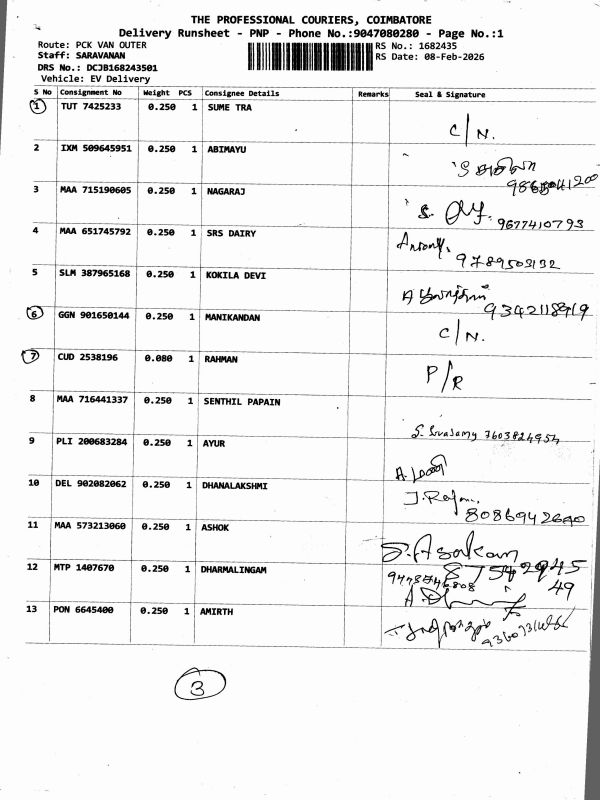 THE PROFESSIONAL COURIERS, COIMBATORE
Delivery Runsheet - PNP - Phone No.:9047080280 - Page No.:1
Route: PCK VAN OUTER RS No.: 1682435
Staff: SARAVANAN RS Date: 08-Feb-2026
DRS No.: DCJB168243501
Vehicle: EV Delivery
S No Consignment No Weight PCS Consignee Details Remarks Seal & Signature
1 TUT 7425233 0.250 1 SUME TRA C/N.
2 IXM 509645951 0.250 1 ABIMAYU
3 MAA 715190605 0.250 1 NAGARAJ S. 9677410793
4 MAA 651745792 0.250 1 SRS DAIRY Antony. 9789503132
5 SLM 387965168 0.250 1 KOKILA DEVI 9342118919
6 GGN 901650144 0.250 1 MANIKANDAN C/N.
7 CUD 2538196 0.080 1 RAHMAN P/R
8 MAA 716441337 0.250 1 SENTHIL PAPAIN S. Sivasamy 7603824954
9 PLI 200683284 0.250 1 AYUR A. மணி
10 DEL 902082062 0.250 1 DHANALAKSHMI J. Rajan. 8086942640
11 MAA 573213060 0.250 1 ASHOK S. Asokan
12 MTP 1407670 0.250 1 DHARMALINGAM
13 PON 6645400 0.250 1 AMIRTH
3